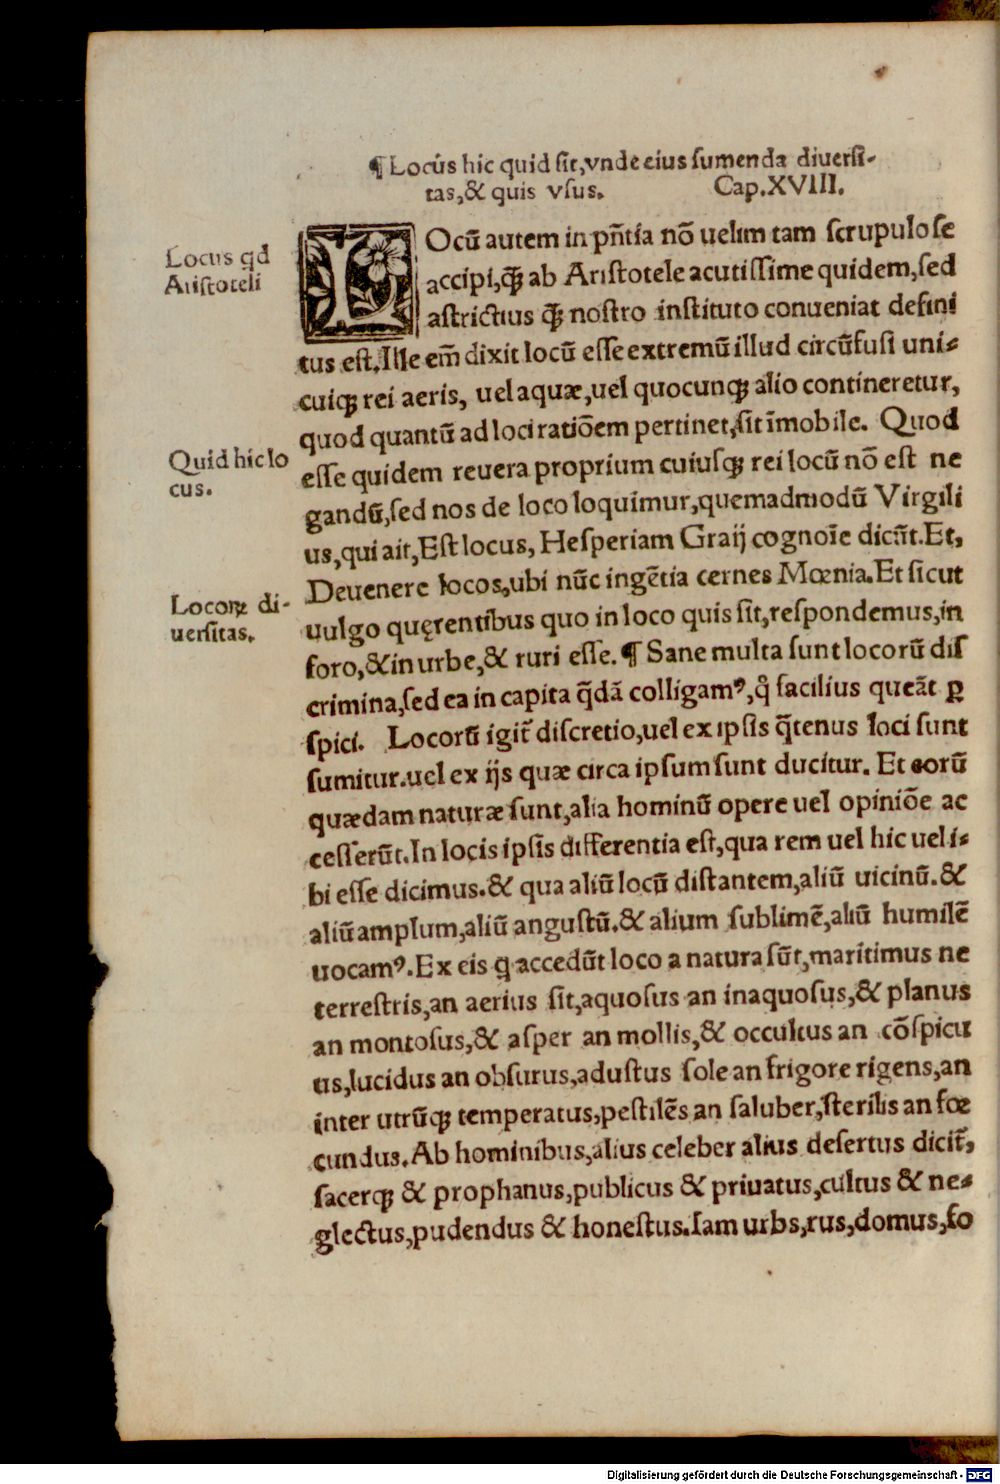 ¶ Locus hic quid sit,vnde eius sumenda diuersi-
tas,& quis vsus. Cap.XVIII.
Locus qd
Aristoteli
LOcū autem in pn̄tia nō uelim tam scrupulose
accipi,q̄ꝫ ab Aristotele acutissime quidem,sed
astrictius q̄ꝫ nostro instituto conueniat defini
tus est.Ille em̄ dixit locū esse extremū illud circūfusi uni-
cuiqꝫ rei aeris, uel aquæ,uel quocunqꝫ alio contineretur,
quod quantū ad loci ratiōem pertinet,sit īmobile. Quod
Quid hic lo
cus.
esse quidem reuera proprium cuiusqꝫ rei locū nō est ne
gandū,sed nos de loco loquimur,quemadmodū Virgili
us,qui ait,Est locus, Hesperiam Graij cognoīe dicūt.Et,
Deuenere locos,ubi nūc ingētia cernes Mœnia.Et sicut
Locorꝝ di-
uersitas.
uulgo quęrentibus quo in loco quis sit,respondemus,in
foro,&in urbe,& ruri esse.¶ Sane multa sunt locorū dis
crimina,sed ea in capita q̄dā colligamꝰ,qͦ facilius queāt ꝑ
spici. Locorū igit̄ discretio,uel ex ipsis q̄tenus loci sunt
sumitur.uel ex ijs quæ circa ipsum sunt ducitur. Et eorū
quædam naturæ sunt,alia hominū opere uel opiniōe ac
cesserūt.In locis ipsis differentia est,qua rem uel hic uel i-
bi esse dicimus.& qua aliū locū distantem,aliū uicinū.&
aliū amplum,aliū angustū.& alium sublimē,aliū humilē
uocamꝰ.Ex eis q accedūt loco a natura sūt,maritimus ne
terrestris,an aerius sit,aquosus an inaquosus,& planus
an montosus,& asper an mollis,& occultus an cōspicu
us,lucidus an obsurus,adustus sole an frigore rigens,an
inter utrūqꝫ temperatus,pestilēs an saluber,sterilis an fœ
cundus.Ab hominibus,alius celeber alius desertus dicit̄,
sacerqꝫ & prophanus,publicus & priuatus,cultus & ne-
glectus,pudendus & honestus.Iam urbs,rus,domus,fo
Digitalisierung gefördert durch die Deutsche Forschungsgemeinschaft - DFG